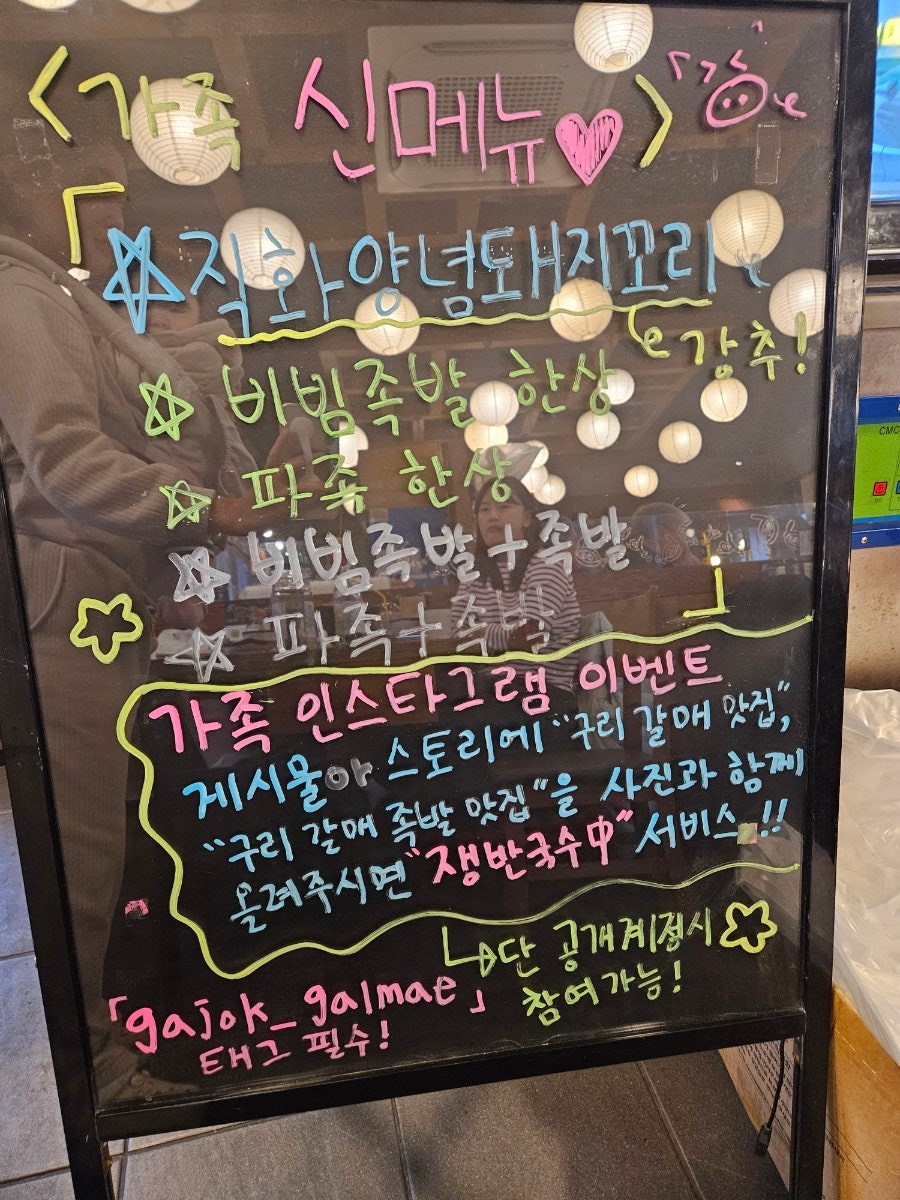 <가족 신메뉴♥>
「☆직화양념돼지꼬리
강추!
☆ 비빔족발 한상
☆ 파족 한상
☆ 비빔족발+족발
☆ 파족+족발 」
가족 인스타그램 이벤트
게시물야 스토리에 "구리 갈매 맛집",
"구리 갈매 족발 맛집"을 사진과 함께
올려주시면 "쟁반국수中" 서비스!!
↳단 공개계정시
참여가능!
「gajok_galmae」
태그 필수!
CMC